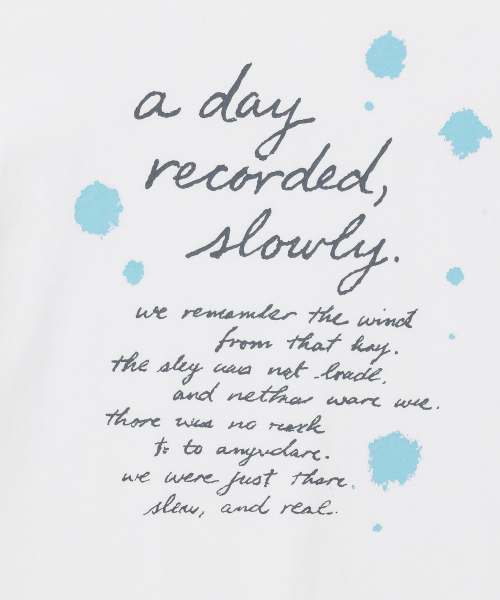 a day
recorded,
slowly.
we remember the wind
from that hay.
the sley was not loud.
and nethar ware we.
thore was no rusk
to anyudare.
we were just thare.
slew, and real.